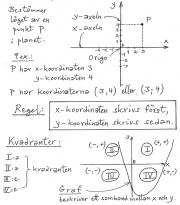 Bestämmer
läget av en
punkt P
i planet.
y-axeln
x-axeln
y
P
x
Origo
Ex.:
P har x-koordinaten 3
y-koordinaten 4
P har koordinaterna (3,4) eller (3;4)
Regel: x-koordinaten skrivs först,
y-koordinaten skrivs sedan.
Kvadranter:
I:a
II:a
III:e
IV:e
kvadranten
(-,+)
II
I
(+,+)
x
(-,-)
III
IV
(+,-)
Graf
beskriver ett samband mellan x och y.